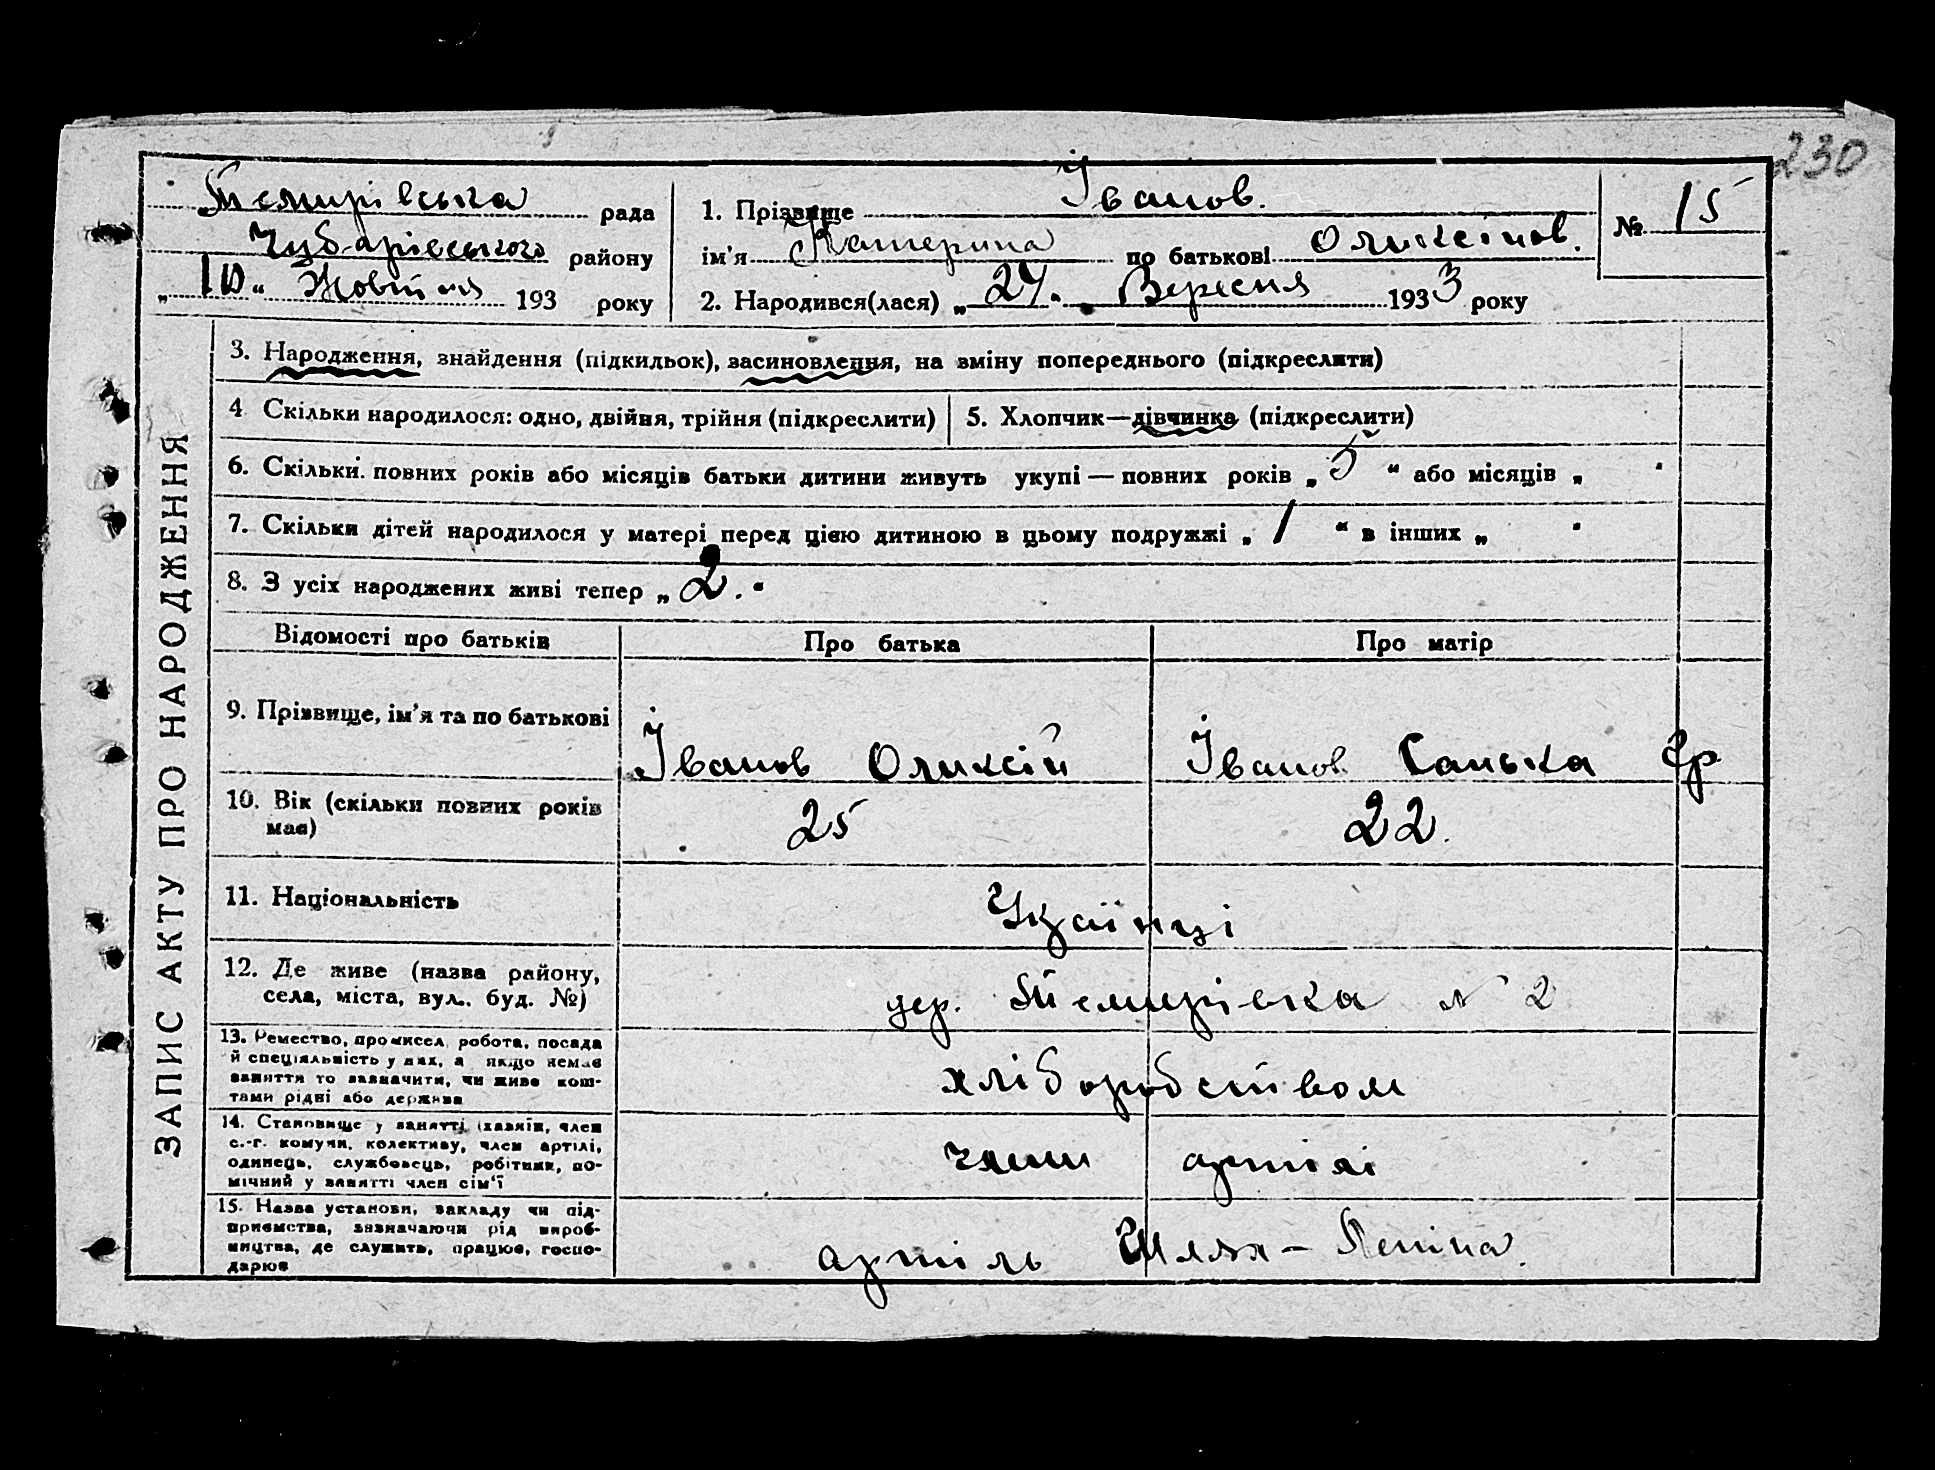 230
Темирівська рада
Чубарівського району
„10“ Жовтня 193 року
1. Прізвище Іванов.
ім'я Катерина по батькові Оликсіинов.
2. Народився(лася) „24“ Вересня 1933 року
№ 15
ЗАПИС АКТУ ПРО НАРОДЖЕННЯ
3. Народження, знайдення (підкидьок), васиновлення, на вміну попереднього (підкреслити)
4 Скільки народилося: одно, двійня, трійня (підкреслити)
5. Хлопчик—дівчинка (підкреслити)
6. Скільки повних років або місяців батьки дитини живуть укупі — повних років „5“ або місяців „
7. Скільки дітей народилося у матері перед цією дитиною в цьому подружжі „1“ в інших „
8. З усіх народжених живі тепер „2.“
Відомості про батьків Про батька Про матір
9. Прізвище, ім'я та по батькові Іванов Оликсій Іванов Санька Гр
10. Вік (скільки повних років має) 25 22.
11. Національність Українці
12. Де живе (назва району,
села, міста, вул., буд. №) дер. Темирівка № 2
13. Ремество, промисел, робота, посада
й спеціяльність у них, а якщо немає
заняття то зазначити, чи живе кош-
тами рідні або держава
хліборобством
14. Становище у занятті (хазяїн, член
с.-г. комуни, колективу, член артілі,
одинець, службовець, робітник, по-
мічний у занятті член сім'ї
члени артілі
15. Назва установи, закладу чи під-
приємства, зазначаючи рід вироб-
ництва, де служить, працює, госпо-
дарює
артіль Шлях – Леніна